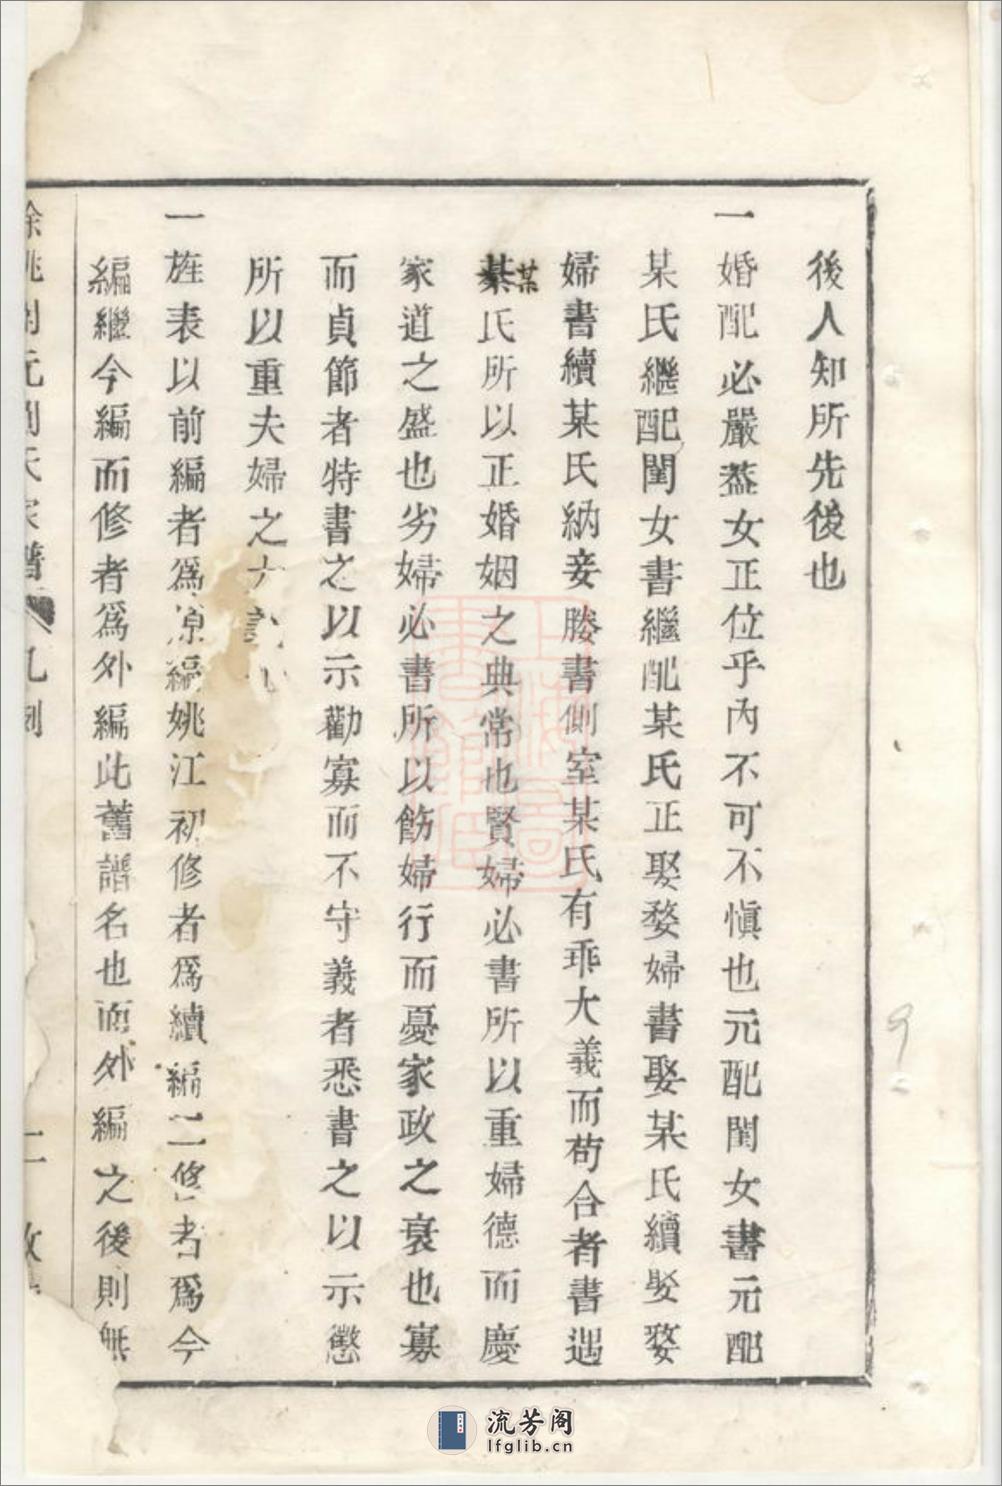 後人知所先後也
一婚配必嚴葢女正位乎內不可不慎也元配閨女書元配
某氏繼配閨女書繼配某氏正娶婺婦書娶某氏續娶婺
婦書續某氏納妾媵書側室某氏有乖大義而苟合者書遇
某氏所以正婚姻之典常也賢婦必書所以重婦德而慶
家道之盛也劣婦必書所以飭婦行而憂家政之衰也寡
而貞節者特書之以示勸寡而不守義者悉書之以示懲
所以重夫婦之大
一旌表以前編者爲原編姚江初修者爲續編二修者爲今
編繼今編而修者爲外編此舊譜名也而外編之後則無
凡例
二
流芳阁
lfglib.cn